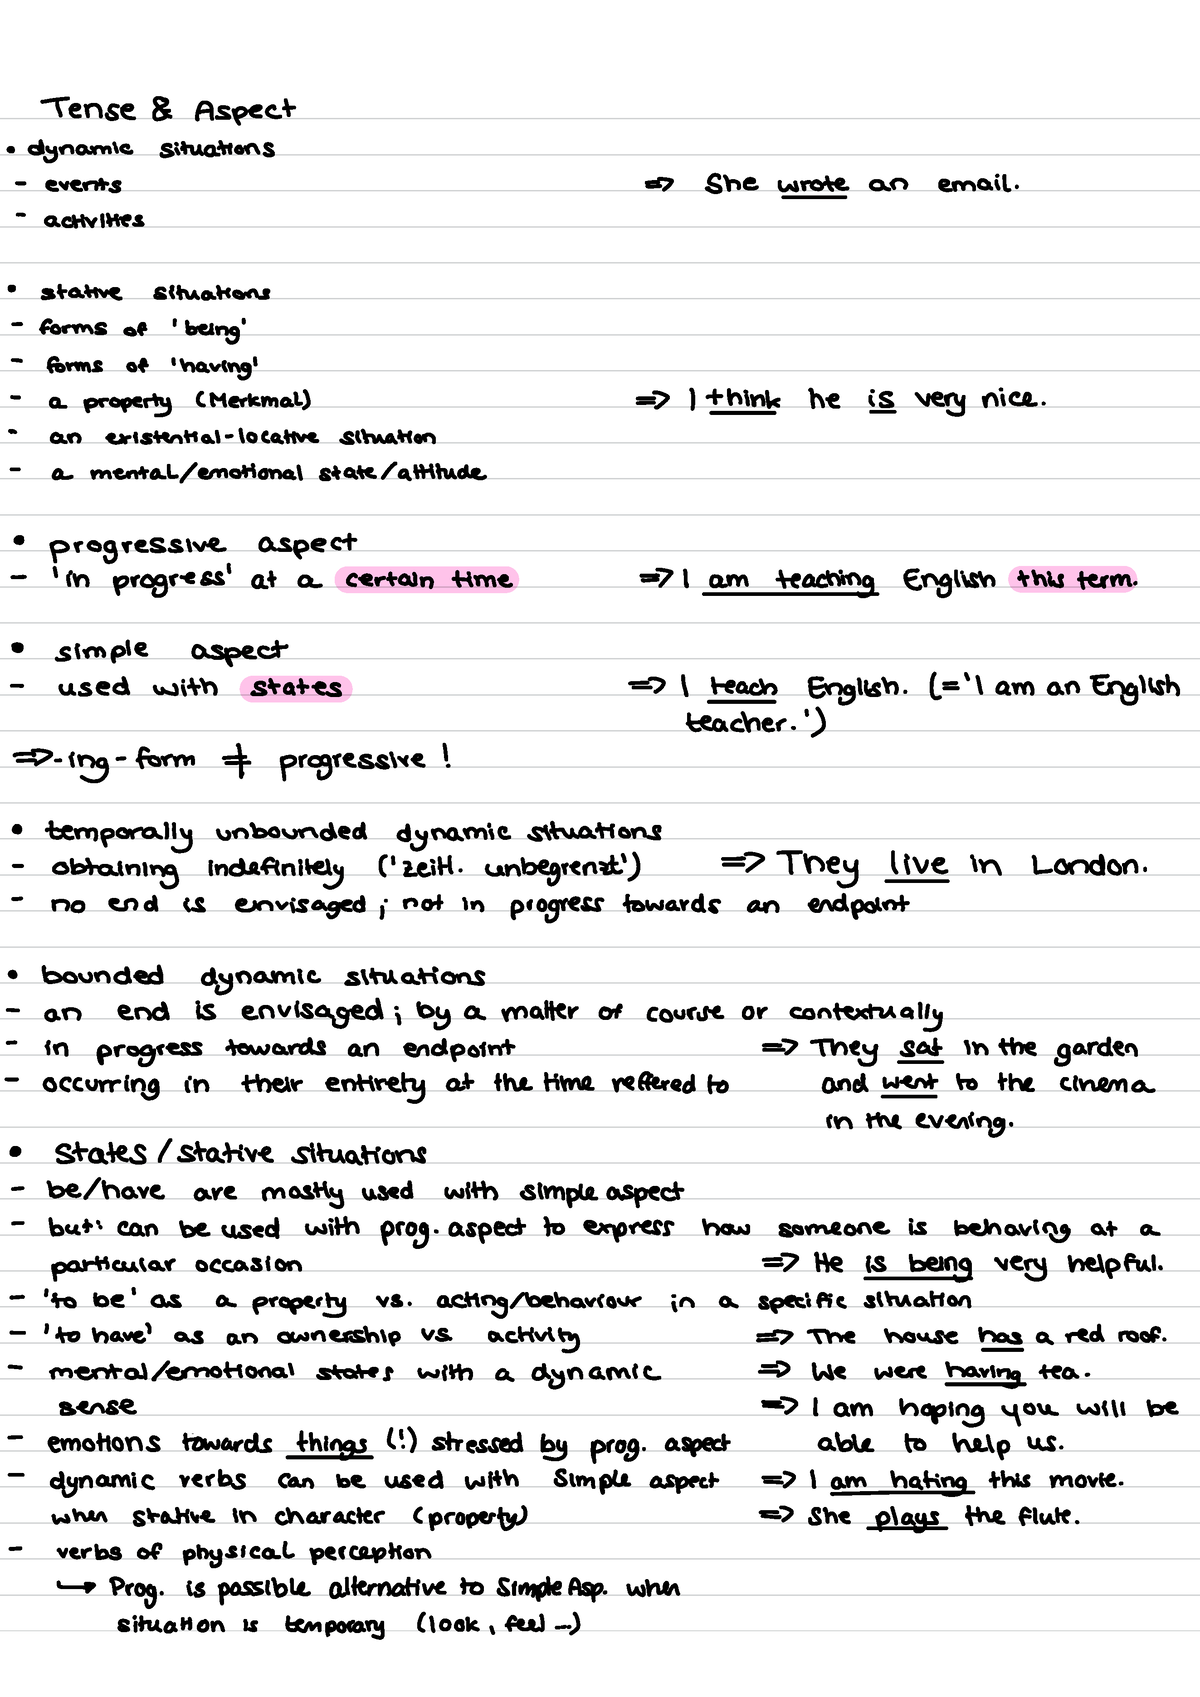 Tense & Aspect
• dynamic situations
- events ⇒ She wrote an email.
- activities
• stative situations
- forms of 'being'
- forms of 'having'
- a property (Merkmal) ⇒ I think he is very nice.
- an existential-locative situation
- a mental/emotional state/attitude
• progressive aspect
- 'in progress' at a certain time ⇒ I am teaching English this term.
• simple aspect
- used with states ⇒ I teach English. (='I am an English
teacher.')
⇒-ing-form ≠ progressive!
• temporally unbounded dynamic situations
- obtaining indefinitely ('zeitl. unbegrenzt') ⇒ They live in London.
- no end is envisaged; not in progress towards an endpoint
• bounded dynamic situations
- an end is envisaged; by a matter of course or contextually
- in progress towards an endpoint ⇒ They sat in the garden
- occurring in their entirety at the time reffered to and went to the cinema
in the evening.
• States/stative situations
- be/have are mostly used with simple aspect
- but: can be used with prog. aspect to express how someone is behaving at a
particular occasion ⇒ He is being very helpful.
- 'to be' as a property vs. acting/behaviour in a specific situation
- 'to have' as an ownership vs. activity ⇒ The house has a red roof.
- mental/emotional states with a dynamic ⇒ We were having tea.
sense ⇒ I am hoping you will be
- emotions towards things (!) stressed by prog. aspect able to help us.
- dynamic verbs can be used with Simple aspect ⇒ I am hating this movie.
when stative in character (property) ⇒ She plays the flute.
- verbs of physical perception
↳ Prog. is possible alternative to Simple Asp. when
situation is temporary (look, feel ...)